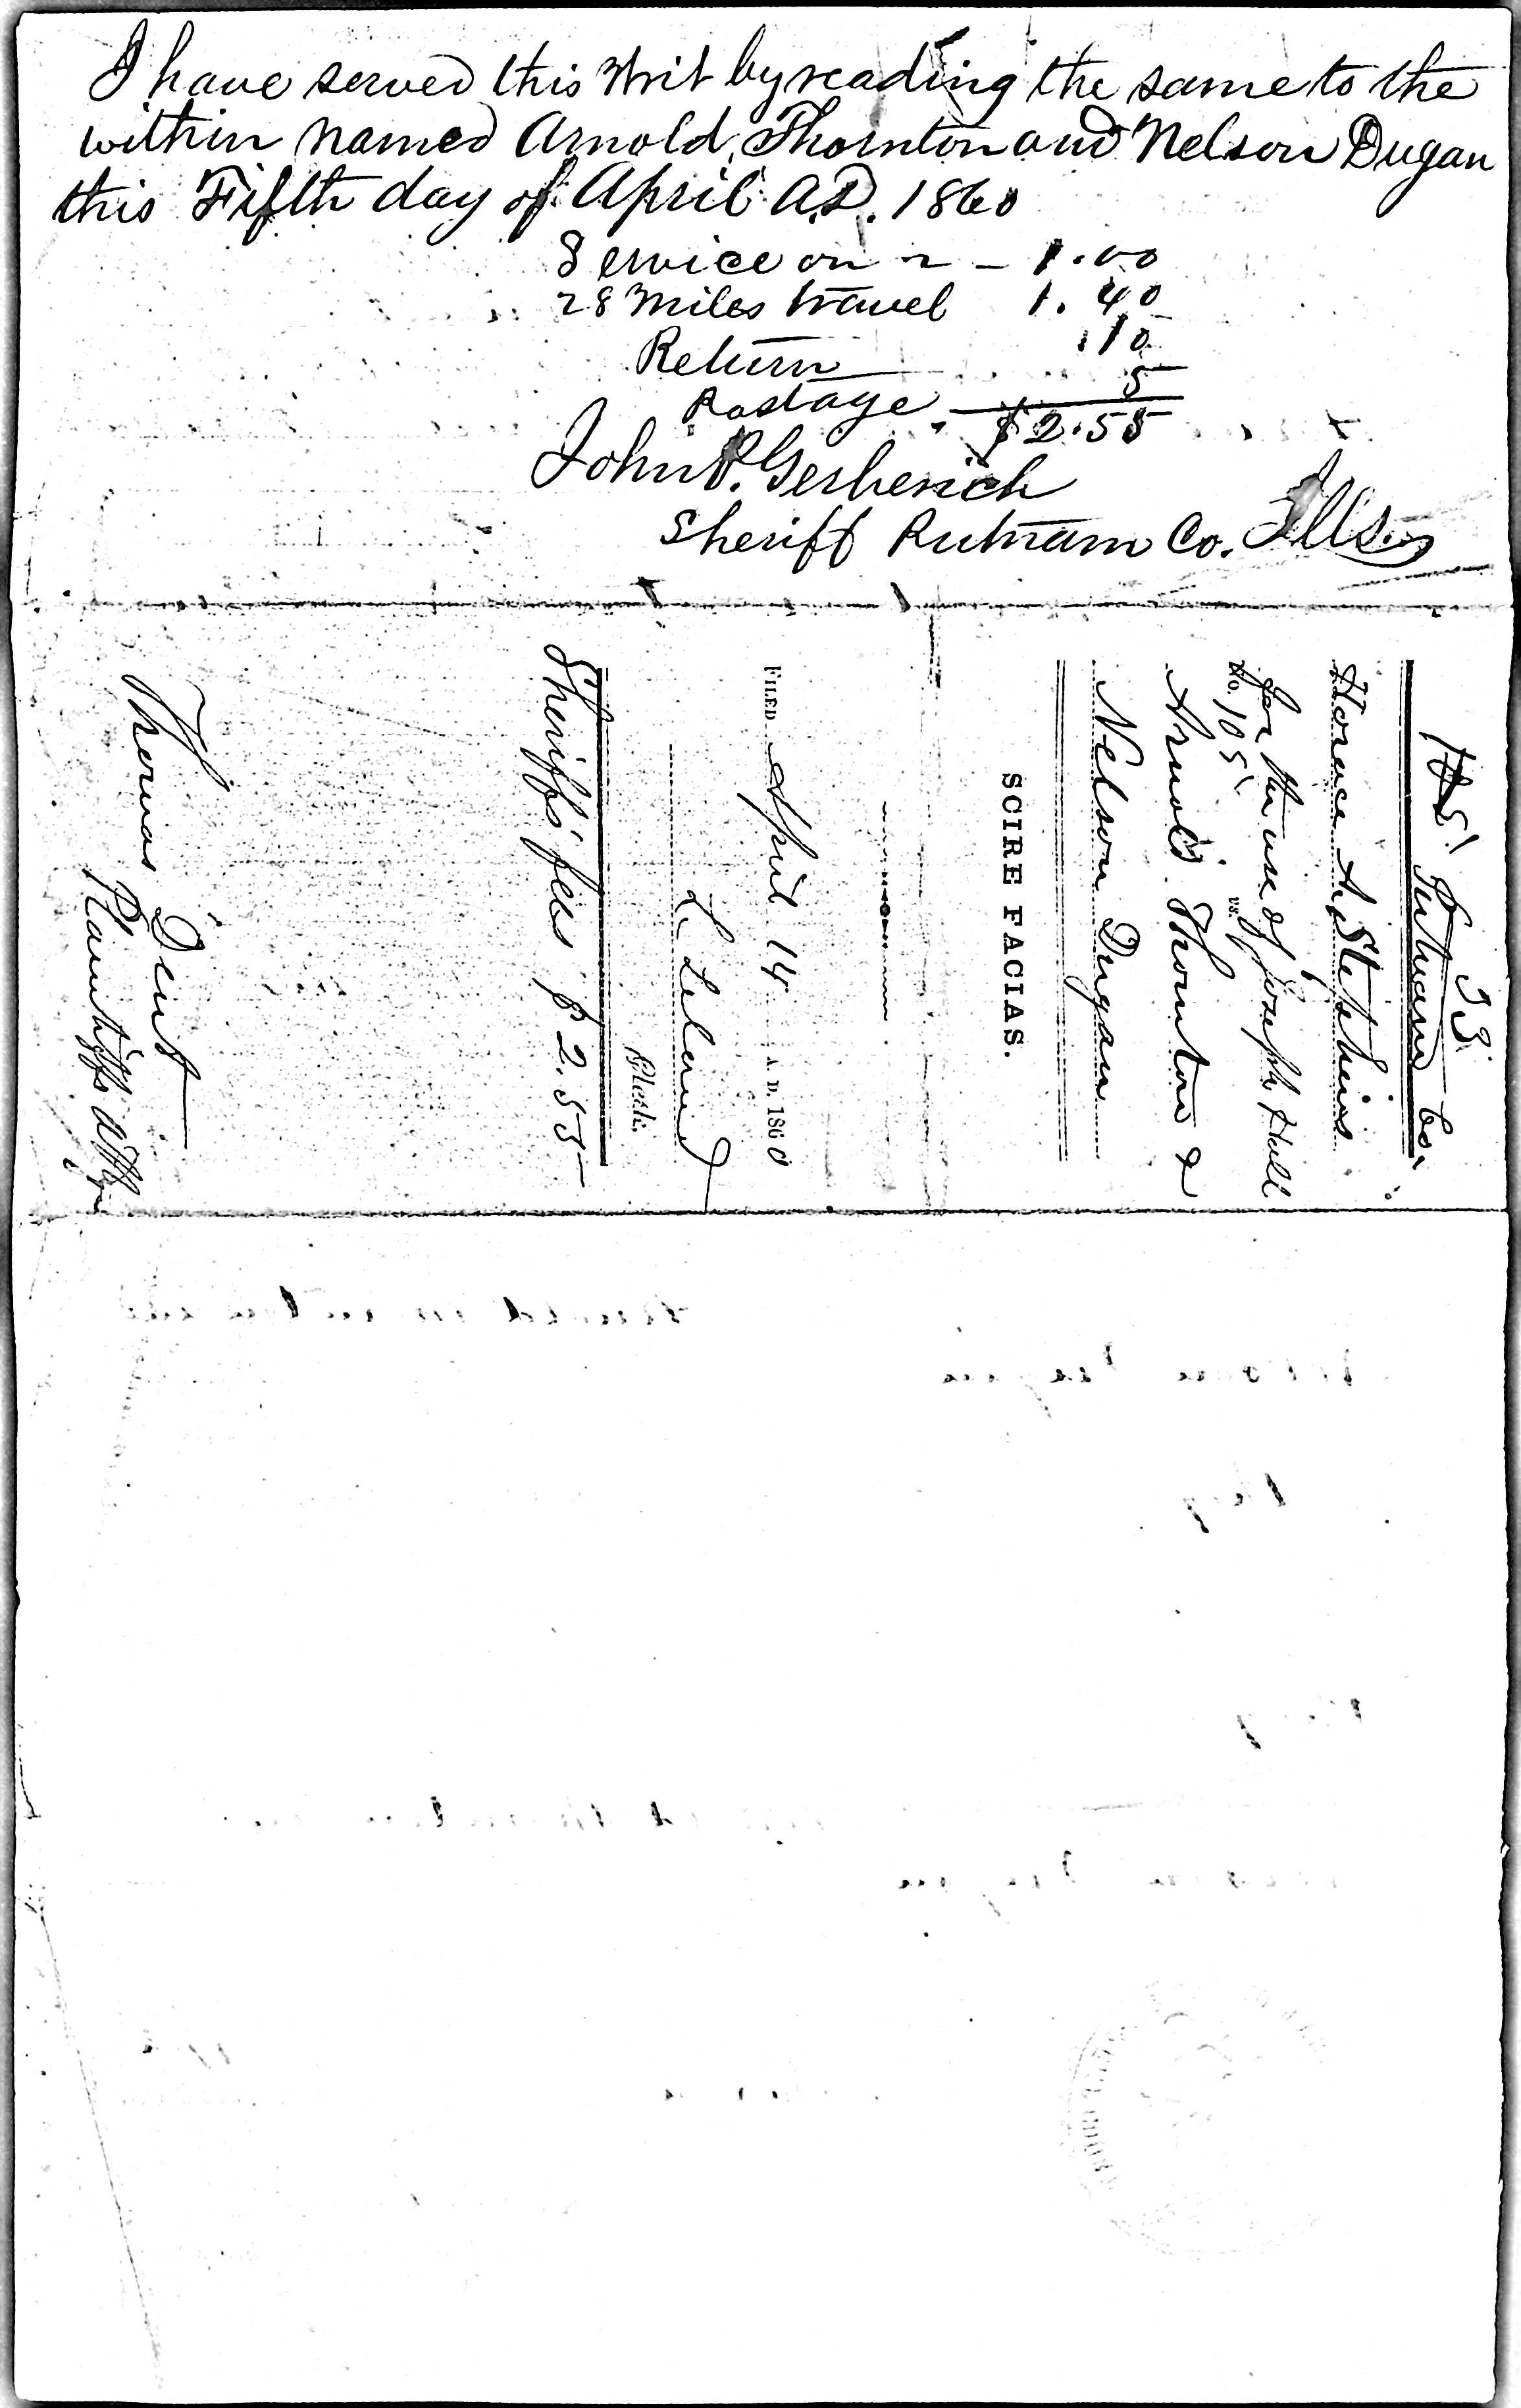 I have served this Writ by reading the same to the
within named Arnold Thornton and Nelson Dugan
this Fifth day of April A.D. 1860
Service on 2 - 1.00
28 Miles travel 1.40
Return .10
Postage 5
$2.55
John P. Gerberich
Sheriff Putnam Co. Ills
33
Putnam Co.
Horace A. Stephens
for the use of Joseph Hall
No. 105
vs.
Arnold Thornton &
Nelson Dugan
SCIRE FACIAS.
FILED April 14 A. D. 1860
L. Leland
Clerk.
Sheriffs fees $2.55
Thomas Dent
Plaintiffs atty